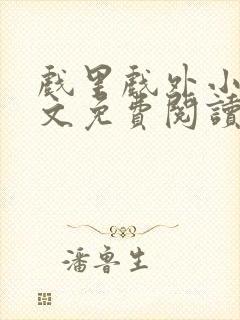 戲里戲外小
文免費閱讀
潘魯生